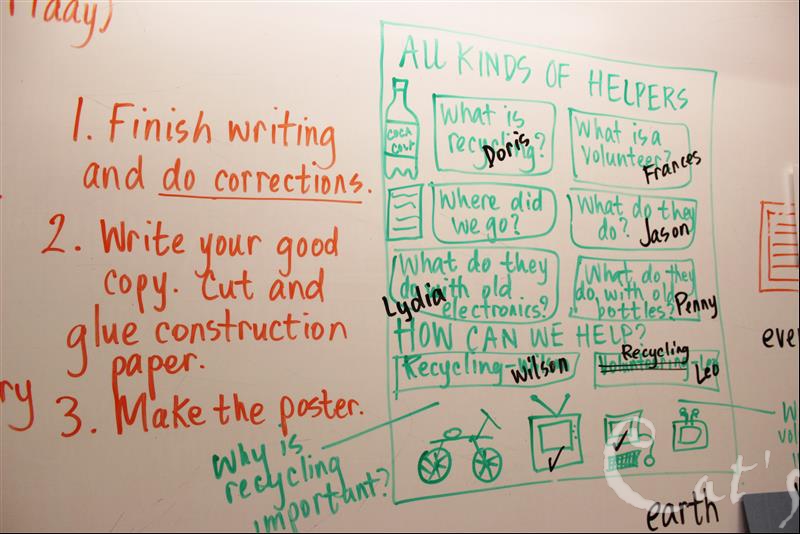 1. Finish writing
and do corrections.
2. Write your good
copy. Cut and
glue construction
paper.
3. Make the poster.
ALL KINDS OF HELPERS
COCA
What is
recycling?
Doris
What is a
volunteer?
Frances
Where did
we go?
What do they
do?
Jason
What do they
do with old
electronics?
Lydia
What do they
do with old
bottles?
Penny
HOW CAN WE HELP?
Recycling
Wilson
Recycling
Leo
Why is
recycling
important?
earth
Cat's